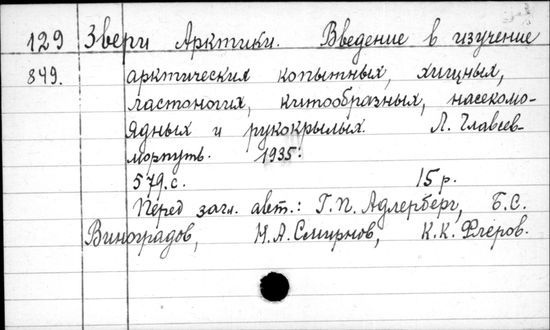 129 Звери Арктики. Введение в изучение
849. арктических копытных, хищных,
ластоногих, китообразных, насекомо-
ядных и рукокрылых. Л. Главсев-
морпуть. 1935.
579.с. 15 р.
Перед загл. авт.: Г.П. Адлерберг, Б.С.
Виноградов, Н.А. Смирнов, К.К. Флеров.